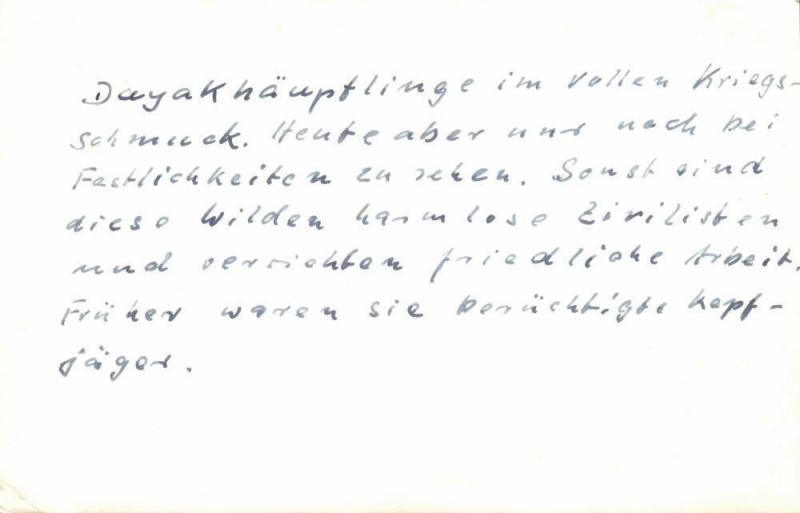 Dayakhäuptlinge im vollen Kriegs-
schmuck. Heute aber nur noch bei
Festlichkeiten zu sehen. Sonst sind
diese Wilden harmlose Zivilisten
und verrichten friedliche Arbeit.
Früher waren sie berüchtigte Kopf-
jäger.